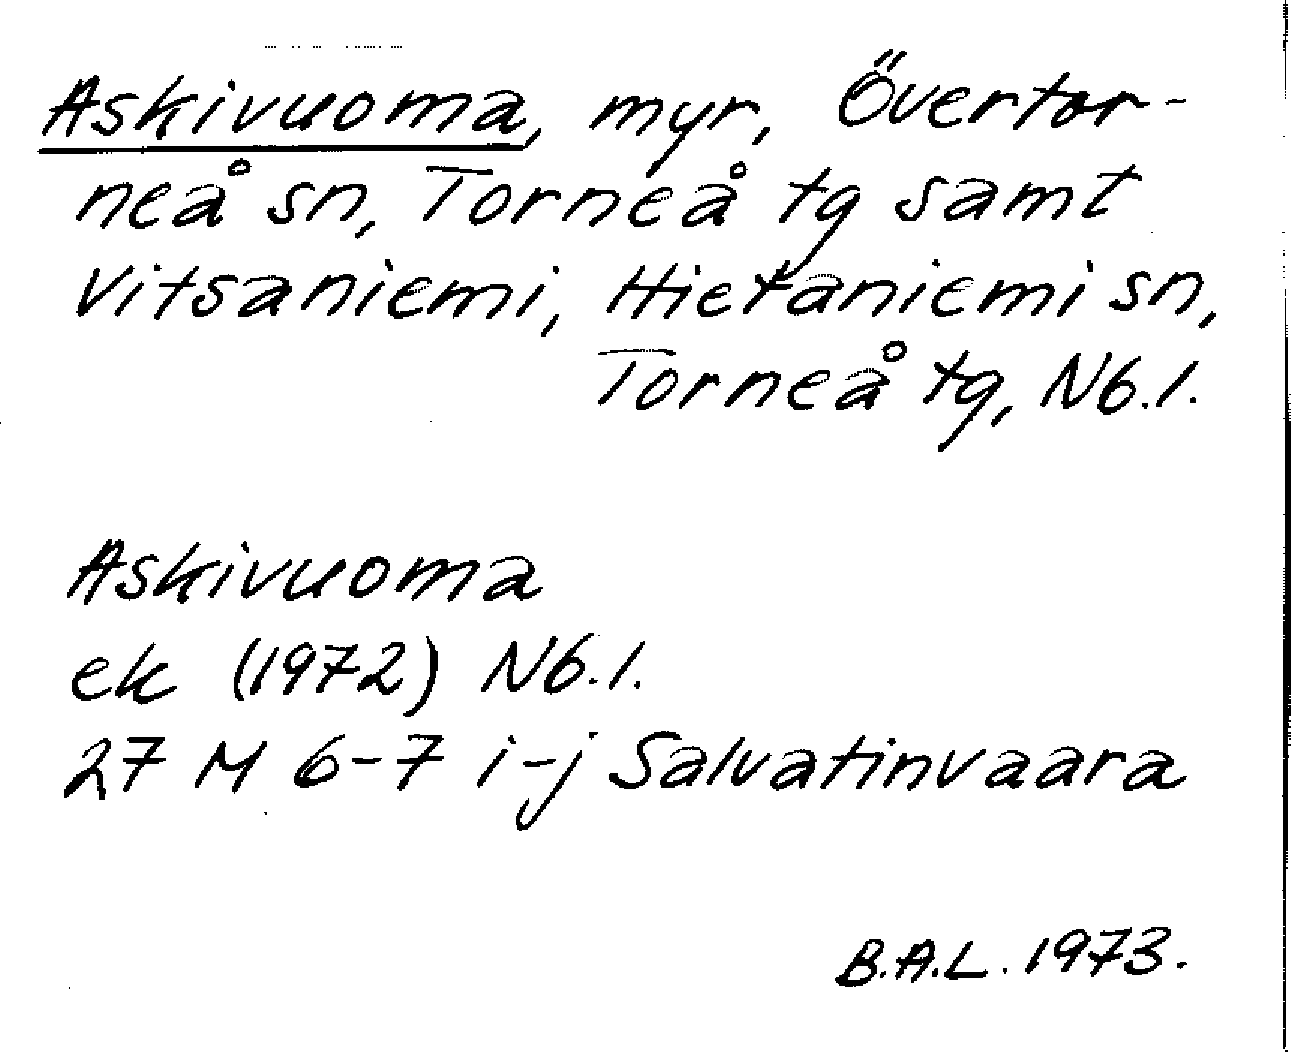 Askivuoma, myr, Övertor-
neå sn, Torneå tg samt
Vitsaniemi, Hietaniemi sn,
Torneå tg, Nb.l.
Askivuoma
ek (1972) Nb.l.
27 M 6-7 i-j Salvatinvaara
B.A.L. 1973.